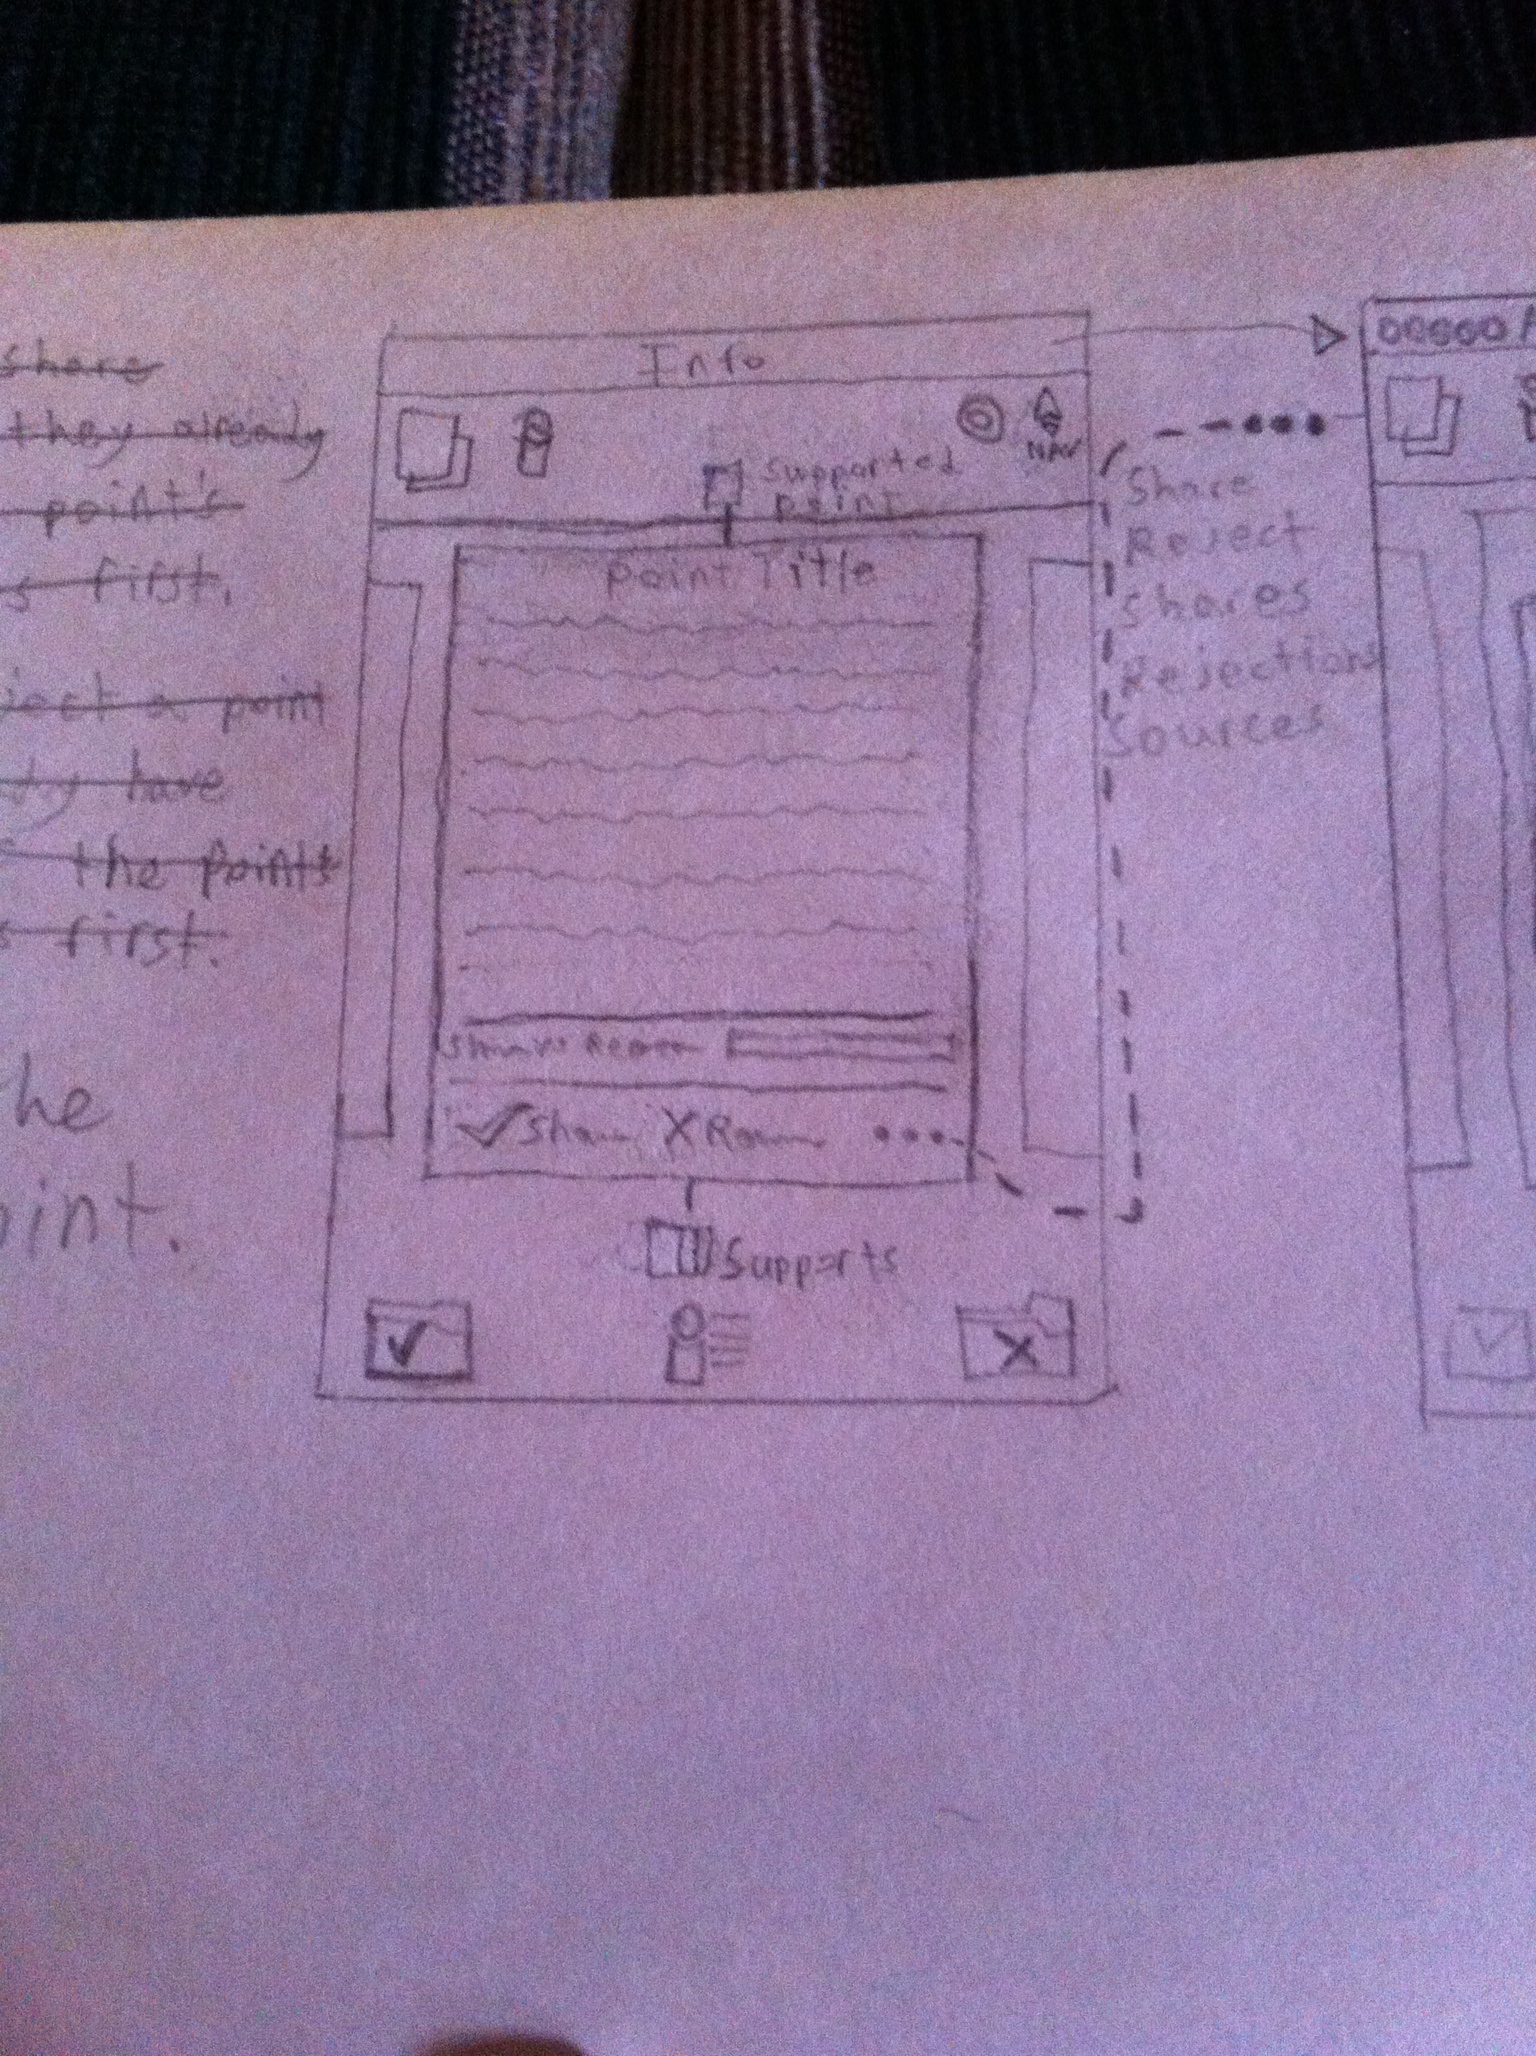 share
they already
point's
first.
a point
have
the points
first.
he
Info
NAV
Supported
point
Point Title
Share
Supports
Share
Reject
Shares
Rejections
Sources